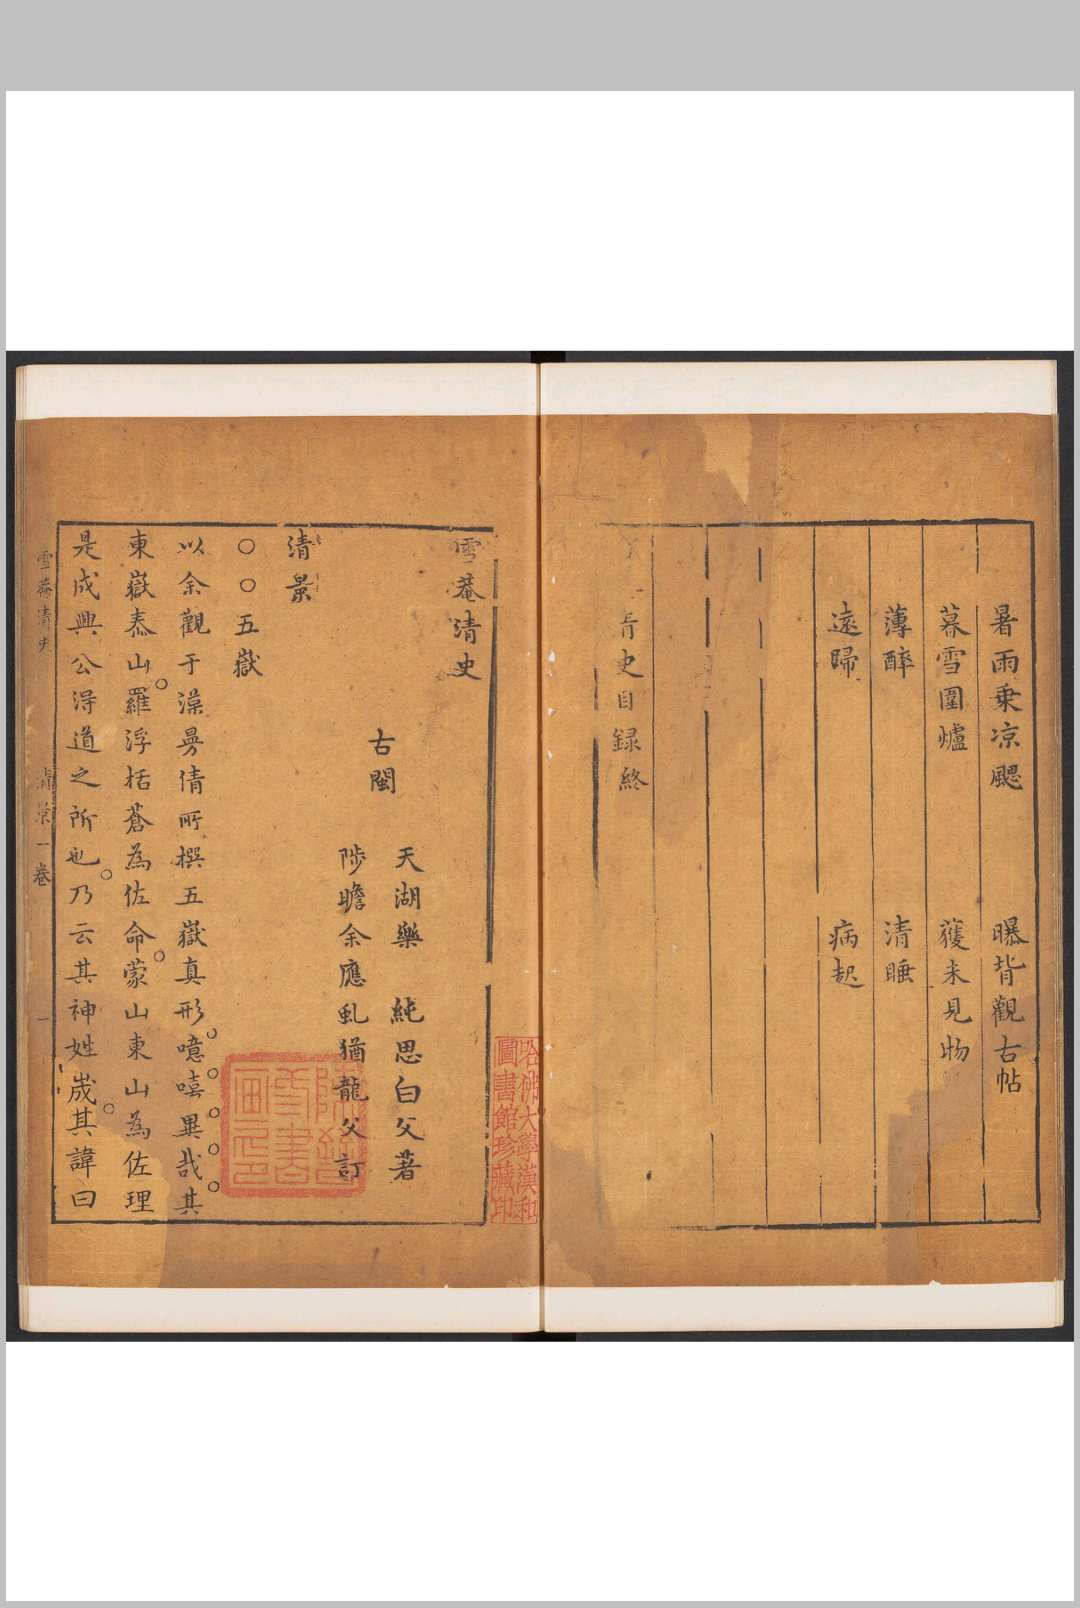 暑雨乗凉颸　曝背觀古帖
暮雪圍爐　獲未見物
薄醉　清睡
遠歸　病起
史目録終
雪菴清史
古閩
天湖樂　純思白父著
陟瞻余應虬猶龍父訂
清景
○○五嶽
以余觀于澡曼倩所撰五嶽真形噫嘻異哉其
東嶽泰山羅浮括蒼為佐命蒙山東山為佐理
是成興公得道之所也乃云其神姓歲其諱曰
雪菴清史　清景一卷　一
哈佛大學漢和
圖書館珍藏印